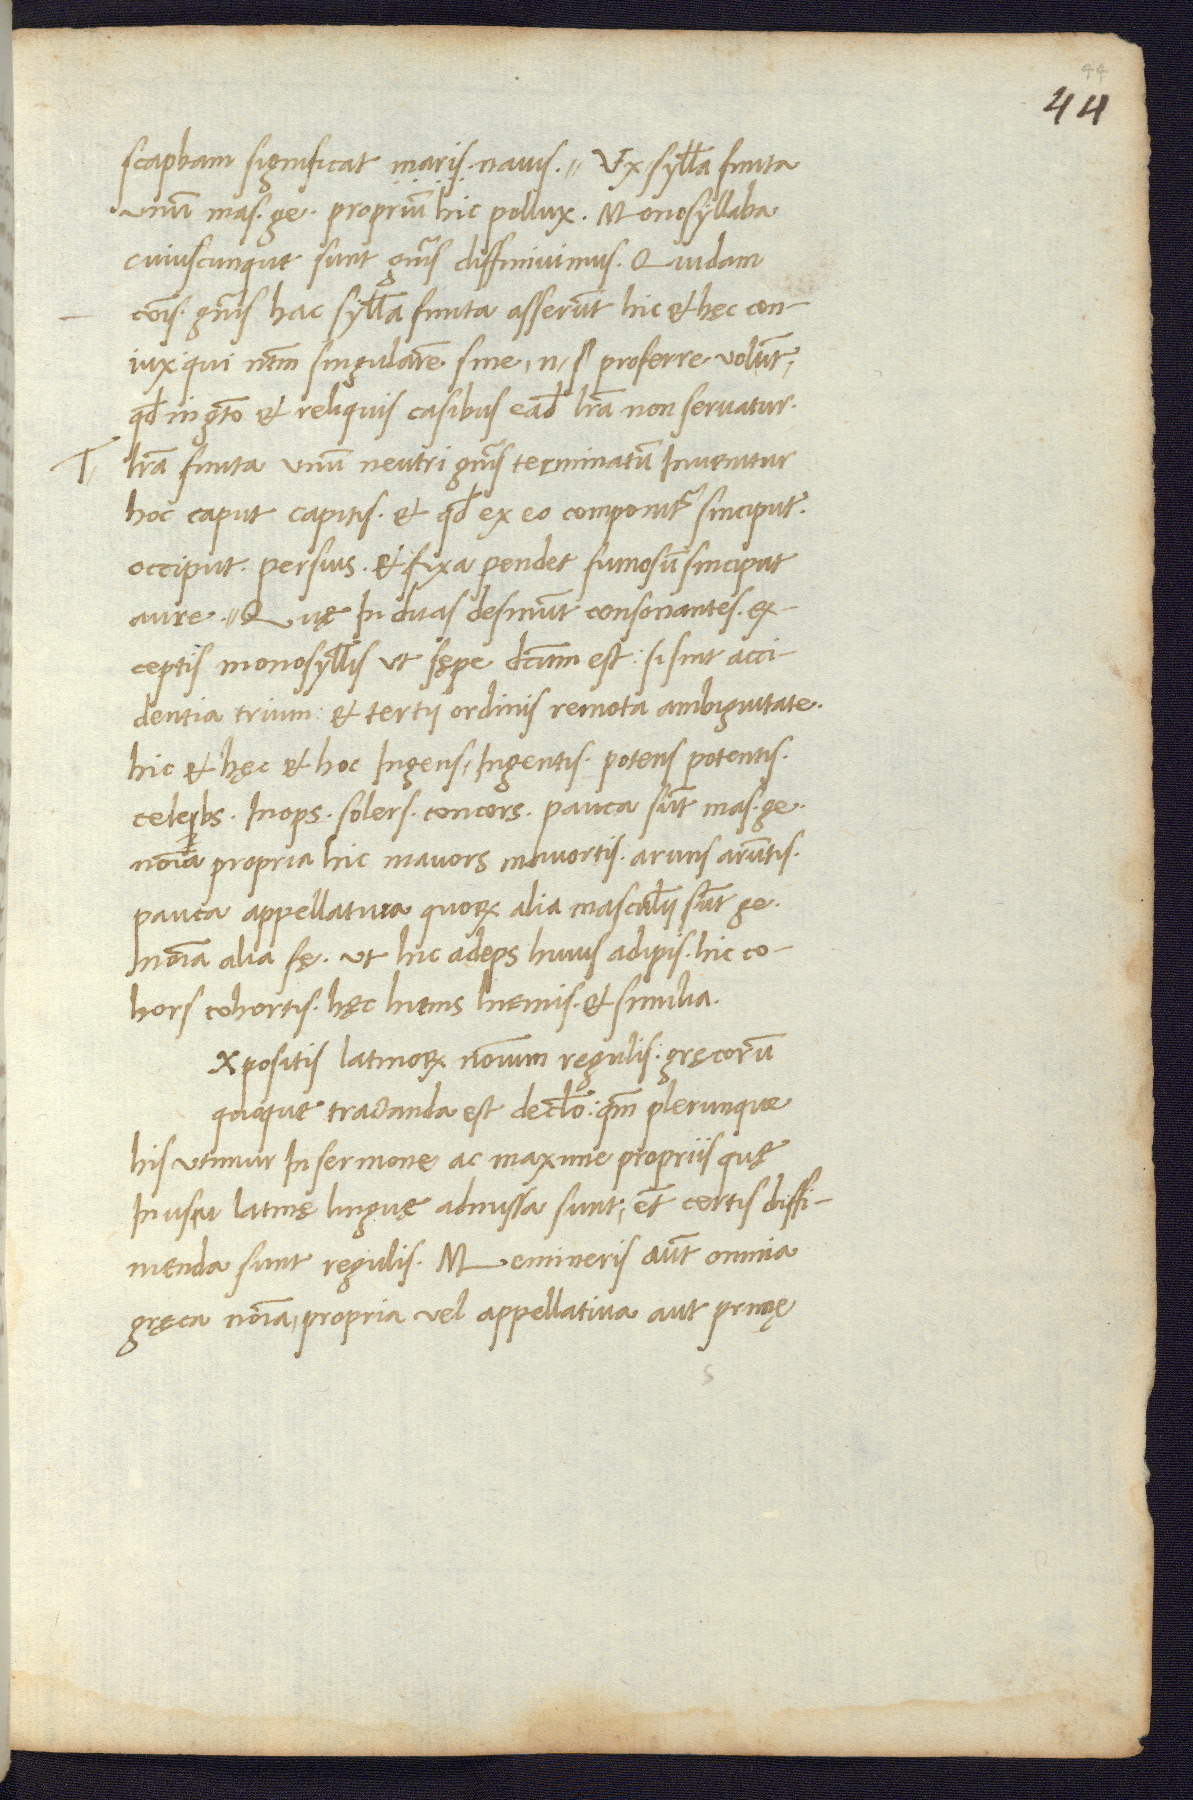 44
44
scapham significat maris. nauis. // Vx syll̄a finita
vnū mas. ge. propriū hic pollux. Monosyllaba
cuiuscunque sunt gn̄is diffiniuimus. Quidam
cōis. gn̄is hac syll̄a finita asserūt hic & hęc con-
iux qui nt̄m singularē sine, n, proferre volūt,
qd̄ in gt̄o & reliquis casibus ead̄ lr̄a non seruatur.
T, lr̄a finita vnū neutri gn̄is terminatū Inuenitur
hoc caput capitis. & qd̄ ex eo componit̄ sinciput.
occiput. persius. & fixa pendet fumosū sinciput
aure. // Quę In duas desinūt consonantes. ex-
ceptis monosyll̄is vt sępe dc̄tum est: si sint acci-
dentia trium: & tertij ordinis remota ambiguitate.
hic & hęc & hoc Ingens, Ingentis. potens potentis.
celebs. Inops. solers. concors. pauca sūt mas. ge.
nōia propria hic mauors mauortis. aruns arūtis.
pauca appellatiua quoꝝ alia masculij sūt ge.
nōia alia fę. vt hic adeps huius adipis. hic co-
hors cohortis. hęc hiems hiemis. & similia.
xpositis latinoꝝ nōium regulis: gręcorū
quoque tractanda est decl̄o: qm̄ plerunque
his vtimur In sermone ac maxime propriis quę
In usu latinę linguę admissa sunt, et̄ certis diffi-
nienda sunt regulis. Memineris aūt omnia
gręca nōia, propria vel appellatiua aut primę